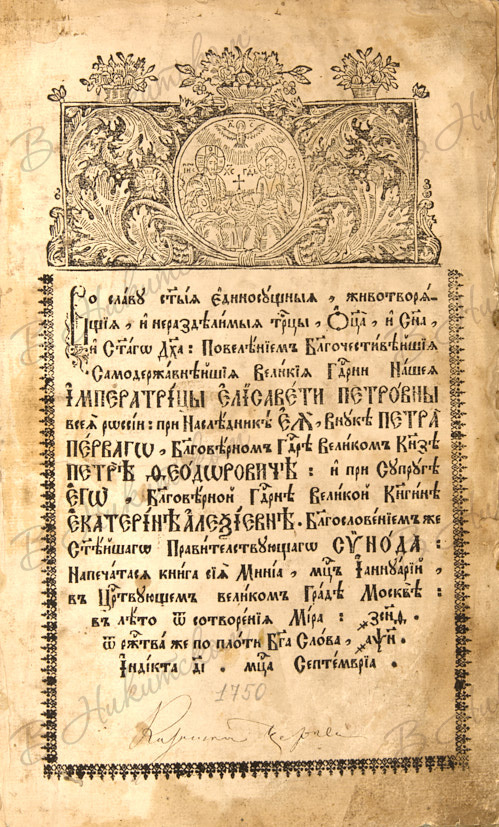 Во славу ст҃ыѧ єдиносꙋщныѧ , животворѧ-
щїѧ , и нераздѣлимыѧ трⷪ҇цы , Ѻ҆ц҃а , и Сн҃а ,
и Ст҃агѡ Дх҃а : Повелѣнїемъ Бл҃гочестивѣйшїѧ
Самодержавнѣйшїѧ Великїѧ Гдⷭ҇рни Нашеѧ
ІМПЕРАТРІЦЫ ЕЛІСАВЕТИ ПЕТРѠВНЫ
всеѧ рѡссїи : при Наслѣдникѣ ЕѦ , Внꙋкѣ ПЕТРА
ПЕРВАГѠ , Бл҃говѣрномъ Гдⷭ҇рѣ Великомъ Кн҃зѣ
ПЕТРѢ ѲЕОДѠРОВИЧѢ : и при Сꙋпрꙋгѣ
ЕГѠ , Бл҃говѣрной Гдⷭ҇рнѣ Великой Кн҃гинѣ
ЕКАТЕРІНѢ АЛЕѮІЕВНѢ . Бл҃гословенїемъ же
Ст҃ѣйшагѡ Правителствꙋющагѡ СѴНОДА :
Напечатасѧ книга сїѧ Минїа , мцⷭ҇ъ Іаннꙋарїй ,
въ Црⷭ҇твꙋющемъ великомъ Градѣ Москвѣ :
въ лѣто ѿ сотворенїѧ Мїра :
ѿ рж҃тва же по плоти Бг҃а Слова , ҂аѱн҃ .
Індїкта д҃і . мцⷭ҇а Септемврїа .
1750